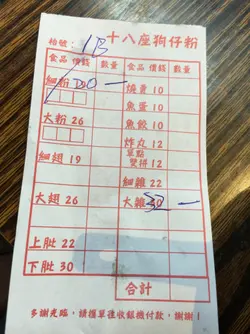 枱號: 1B 十八座狗仔粉
食品 價錢 數量 食品 價錢 數量
細粉 20 一 燒賣 10
魚蛋 10
大粉 26 魚餃 10
炸丸 12
細翅 19 單點雙拼 12
細雜 22
大翅 26 大雜 32 一
上肶 22
下肶 30 合計
多謝光臨, 請攜單往收銀機付款, 謝謝!